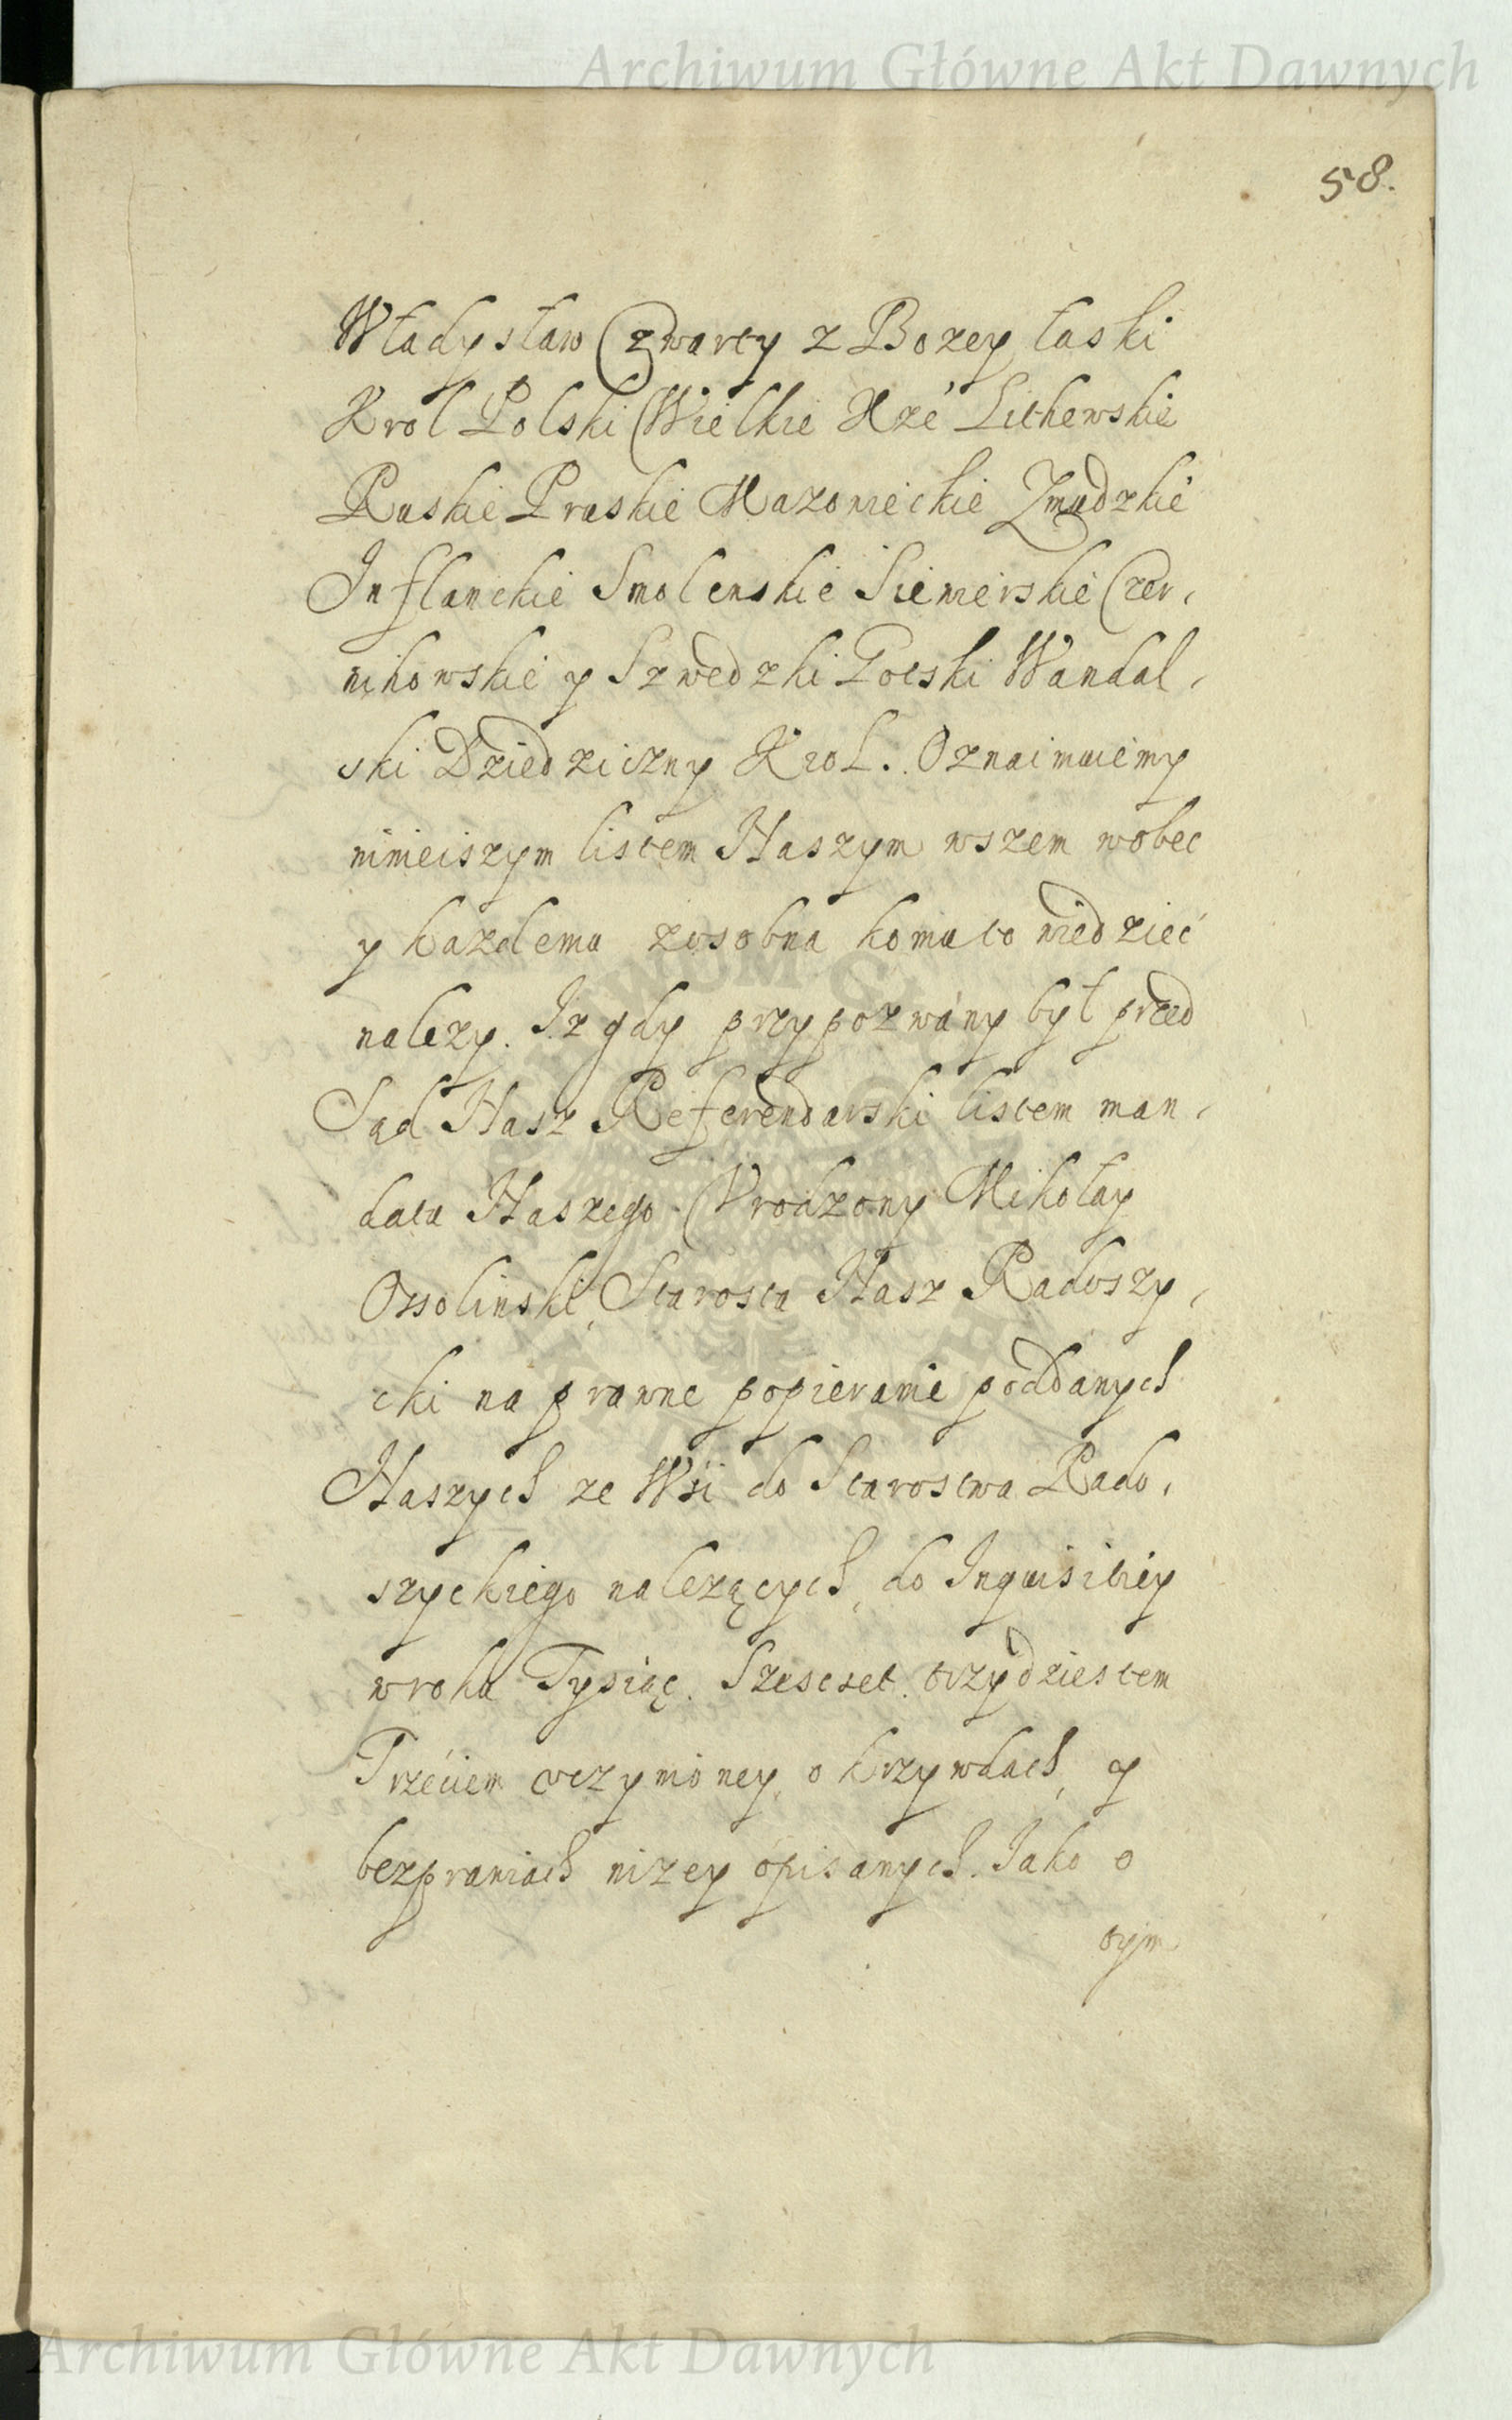 Archiwum Główne Akt Dawnych
58.
Władysław Czwarty z Bozey łaski
Krol Polski Wielkie Xze Lithewskie
Ruskie Pruskie Mazowieckie Zmudzkie
Inflanckie Smolenskie Siewierskie Czer,
nihowskie y Szwedzki Gotski Wandal,
ski Dziedziczny Krol. Oznaimuiemy
ninieiszym listem Naszym wszem wobec
y kazdemu zosobna komu to wiedzieć
nalezy. Iz gdy przypozwány był przed
Sąd Nasz Referendarski listem man,
datu Naszego Vrodzony Mikołay
Ossolinski, Starosta Nasz Radoszy,
cki na prawne popieranie poddanych
Naszych ze Wsi do Starostwa Rado,
szyckiego nalezących, do Inquisitiey
wroku Tysiąc. Szescset. trzydziestem
Trzećiem vczynioney, o krzywdach, y
bezprawiach nizey opisanych. Iako o
tym
Archiwum Główne Akt Dawnych